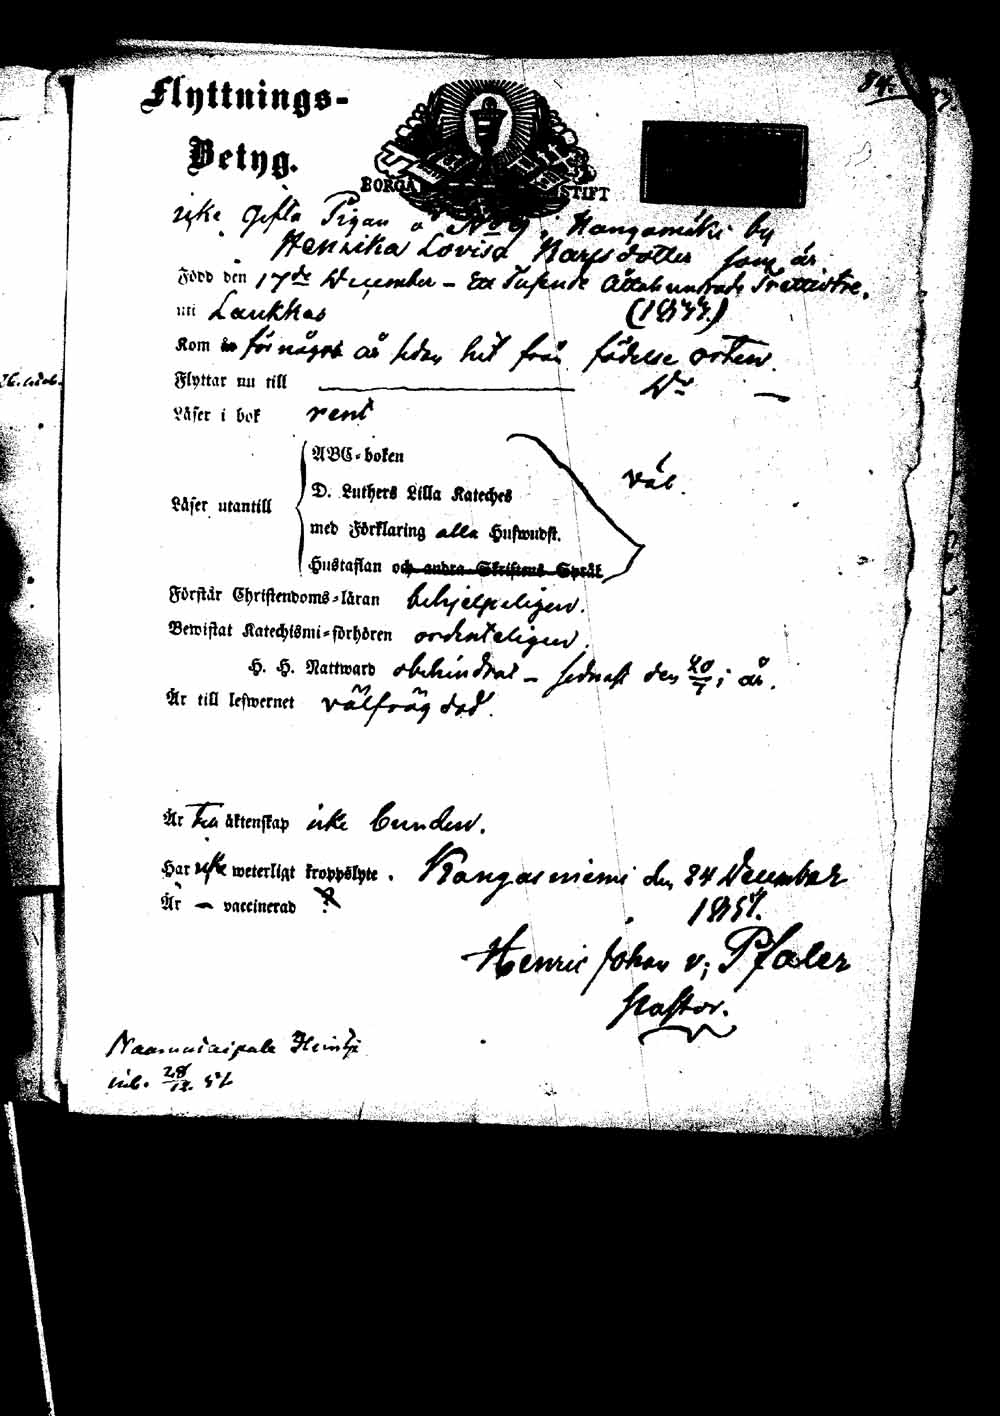 84.
Flyttnings-
Betyg.
BORGÅ STIFT
icke gifta Pigan å No 9, Kangasmäki by
Henrika Lovisa Larsdotter som är
Född den 17de December – Ett Tusende Åttahundrade Trettiotre.
uti Laukkas (1833.)
Kom för några år sedan hit från födelse orten.
Flyttar nu till
Läser i bok rent
Läser utantill
ABC-boken
D. Luthers Lilla Kateches väl.
med Förklaring alla Hufwudst.
Hustaflan och andra Skriftens Språk
Förstår Christendoms-läran behjelpeligen.
Bewistat Katechismi-förhören ordenteligen.
H. H. Nattward obehindrat – sednast den 20/7 i år.
Är till lefwernet välfrägdad.
Är till äktenskap icke bunden.
Har icke weterligt kroppslyte. Kangasniemi den 24 December
Är – vaccinerad ? 1857.
Henric Johan v; Pfaler
Pastor.
inb. 28/12. 57